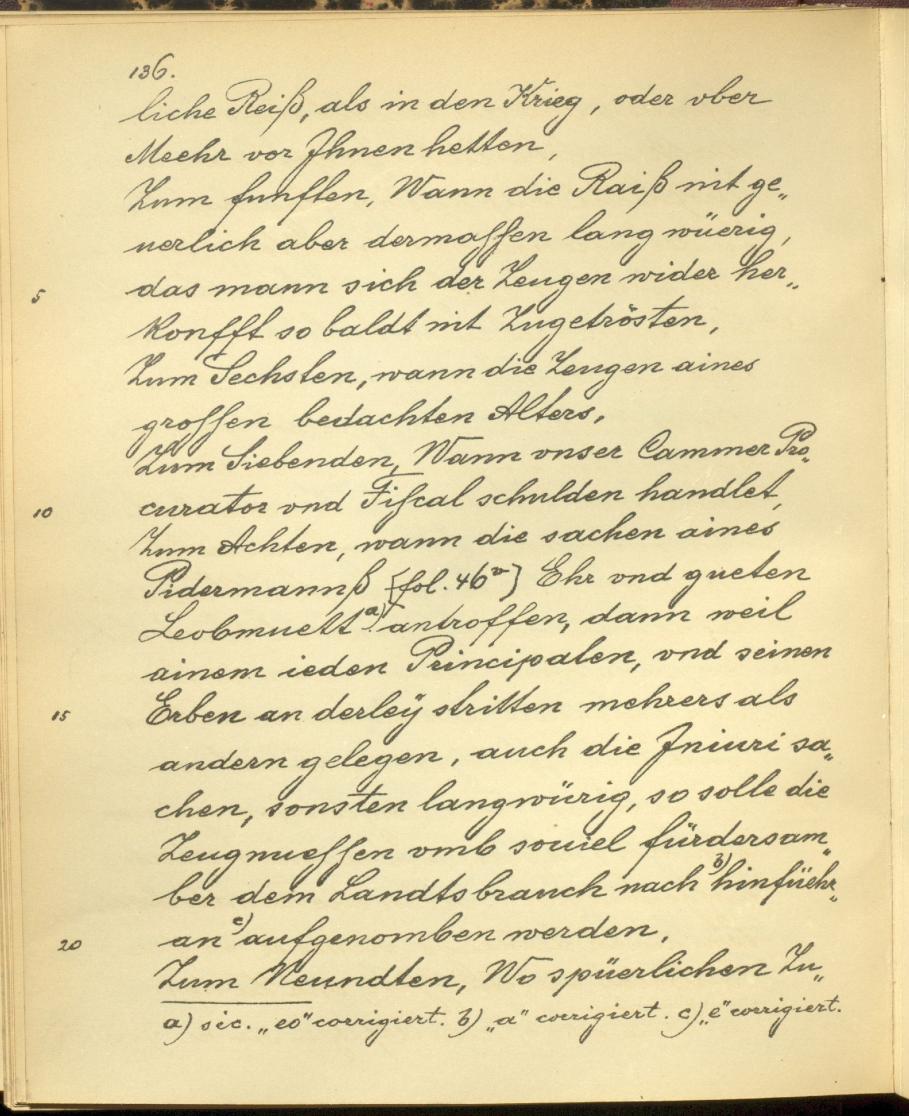 136.
liche Reiß, als in den Krieg, oder vber
Meehr vor Jhnen hetten,
Zum funfften, Wann die Raiß nit ge„
uerlich aber dermassen lang wüerig,
5 das mann sich der Zeugen wider her„
konfft so baldt nit Zugetrösten,
Zum Sechsten, wann die Zeugen aines
grossen bedachten Alters,
Zum Siebenden, Wann vnser Cammer Pro„
10 curator vnd Fiscal schulden handlet,
Zum Achten, wann die sachen aines
Pidermannß [fol. 46v] Ehr vnd gueten
Leobmuett a) antroffen, dann weil
ainem ieden Principalen, vnd seinen
15 Erben an derleÿ stritten mehrers als
andern gelegen, auch die Jniuri sa„
chen, sonsten langwürig, so solle die
Zeugnuessen vmb souiel fürdersam„
ber dem Landtsbrauch nach b) hinfüehr„
20 an c) aufgenomben werden,
Zum Neundten, Wo spüerlichen Zu„
a) sic. „eo" corrigiert. b) „a" corrigiert. c) „e" corrigiert.